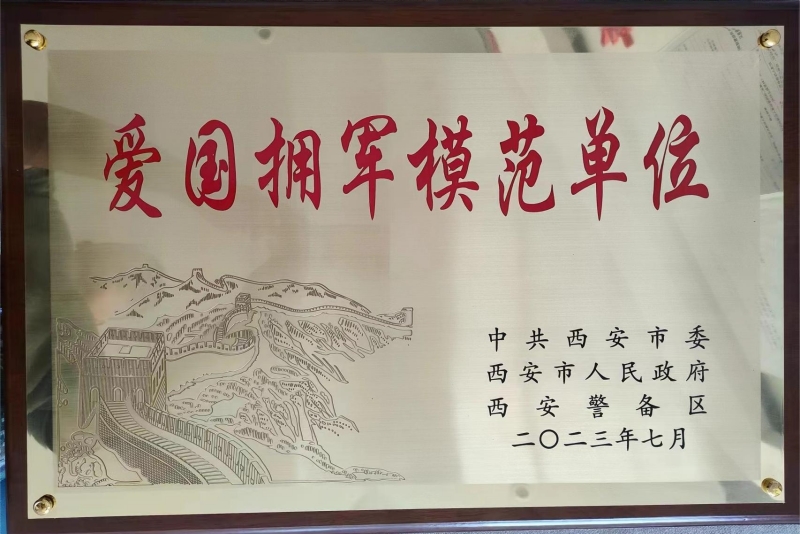 爱国拥军模范单位
中共西安市委
西安市人民政府
西安警备区
二〇二三年七月